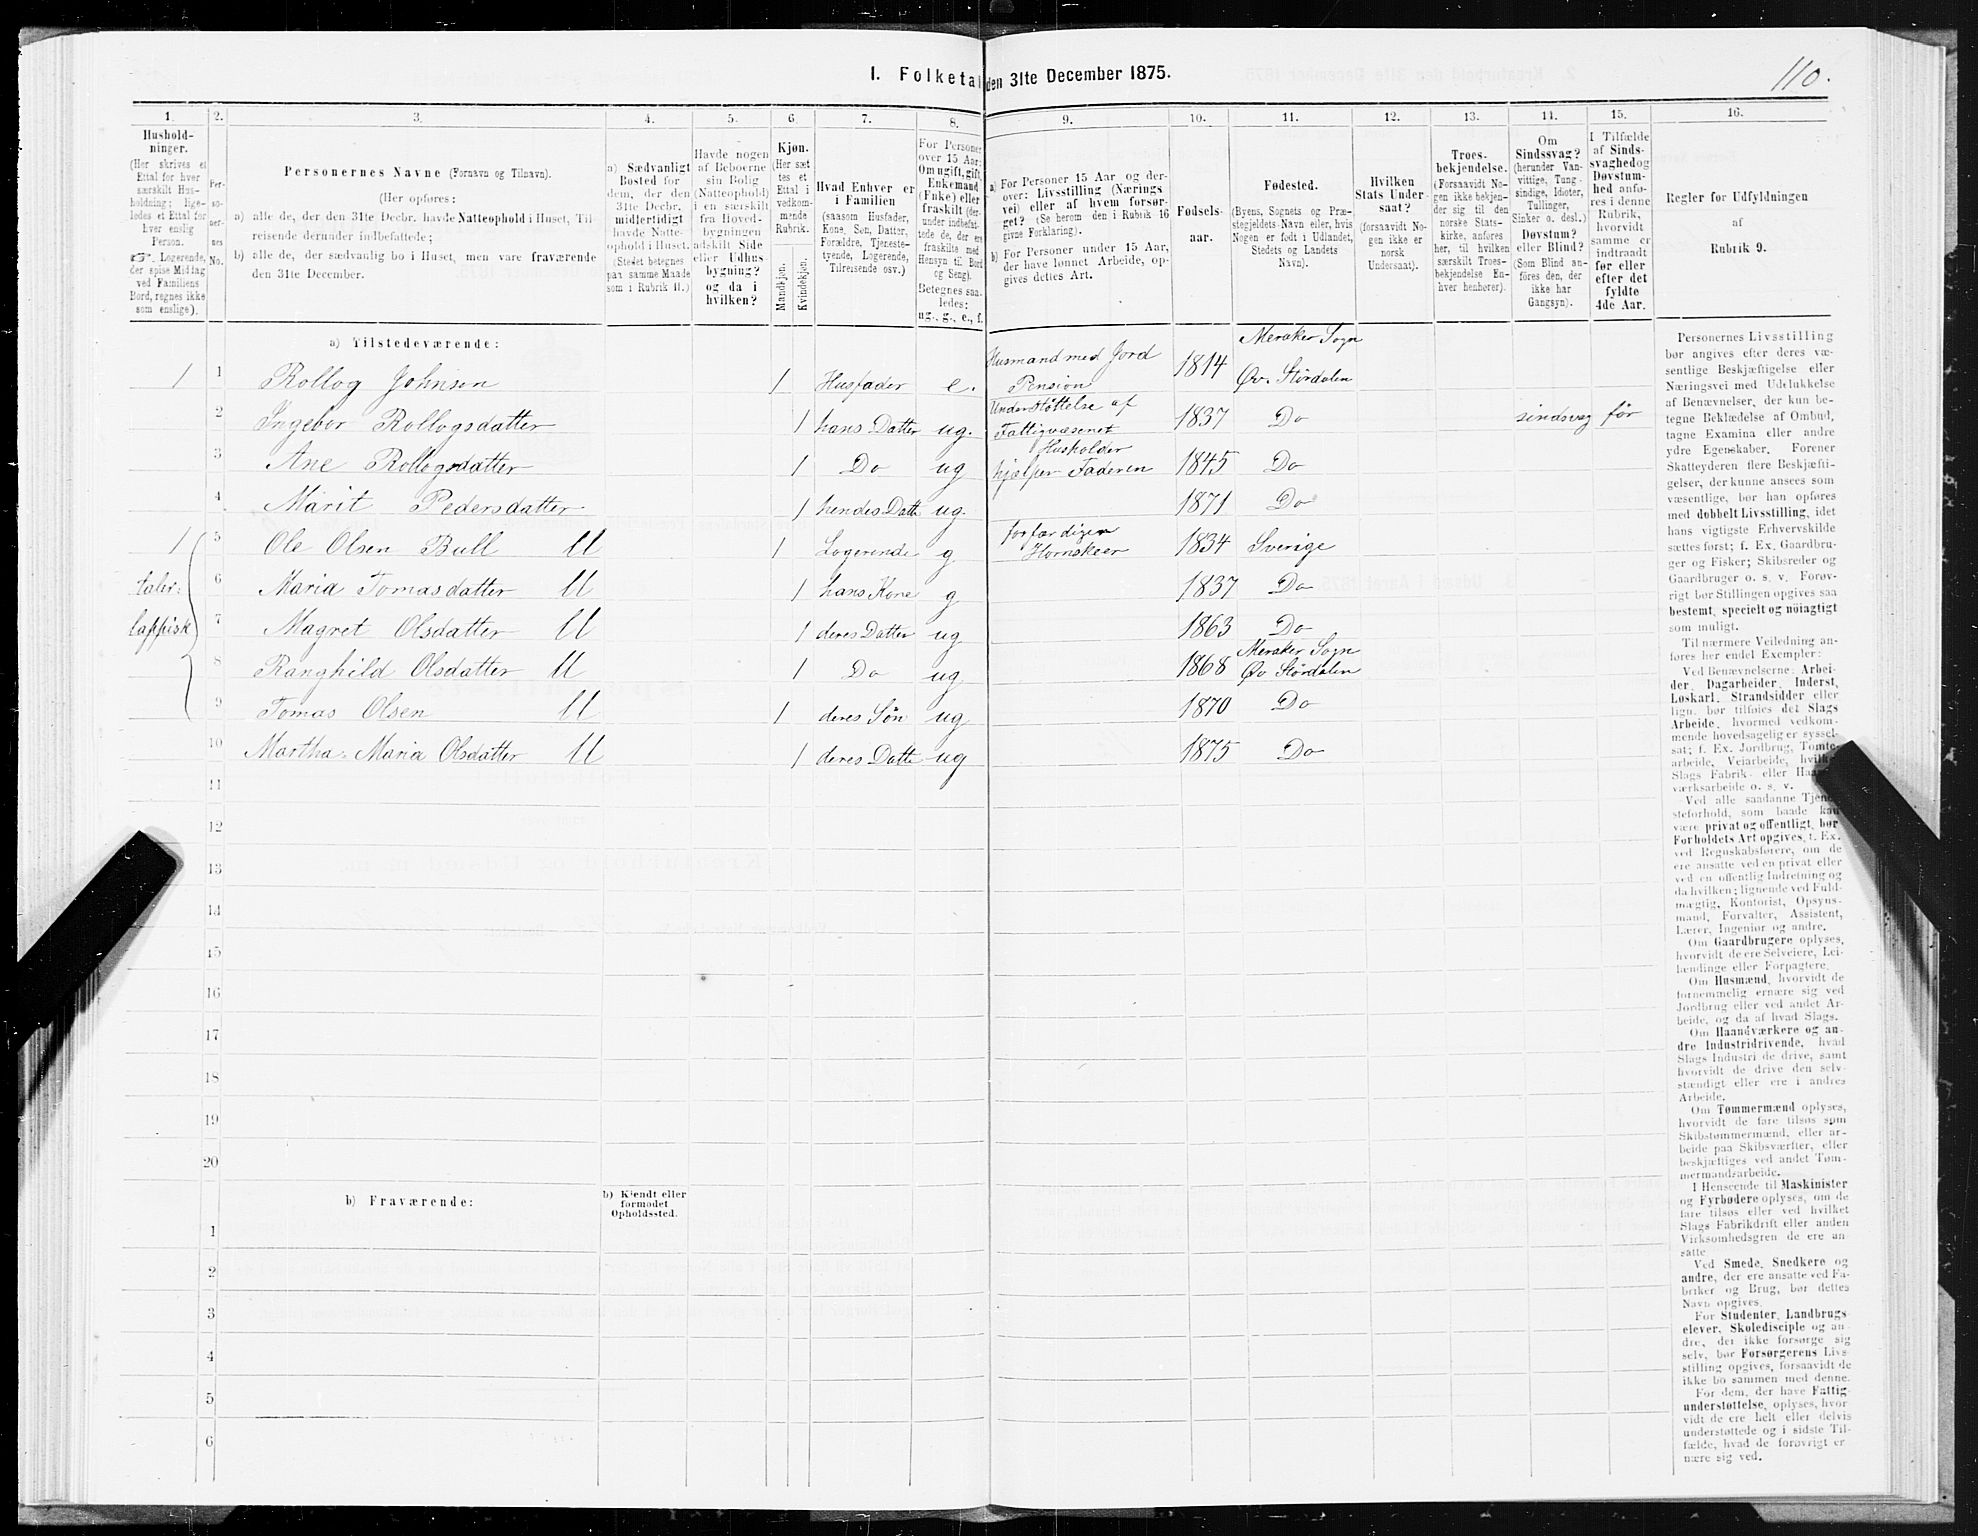 I. Folketal den 31te December 1875.
110.
1. 2. 3. 4. 5. 6. 7. 8. 9. 10. 11. 12. 13. 14. 15. 16.
Hushold-
ninger.
(Her skrives et
Ettal for hver
særskilt Hus-
holdning; lige-
ledes et Ettal for
hver enslig
Person.
☞. Logerende,
der spise Middag
ved Familiens
Bord, regnes ikke
som enslige).
Per-
so-
ner-
nes
No.
Personernes Navne (Fornavn og Tilnavn).
(Her opføres:
a) alle de, der den 31te Decbr. havde Natteophold i Huset, Til-
reisende derunder indbefattede;
b) alle de, der sædvanlig bo i Huset, men vare fraværende
den 31te December.
a) Sædvanligt
Bosted for
dem, der den
31te Decbr.
midlertidigt
havde Natte-
ophold i Huset.
(Stedet betegnes
paa samme Maade
som i Rubrik 11.)
Havde nogen
af Beboerne
sin Bolig
(Natteophold)
i en særskilt
fra Hoved-
bygningen
adskilt Side
eller Udhus-
bygning?
og da i
hvilken?
Kjøn.
(Her sæt-
tes et
Ettal i
vedkom-
mende
Rubrik.
Mandkjøn.
Kvindekjøn.
Hvad Enhver er
i Familien
(saasom Husfader,
Kone, Søn, Datter,
Forældre, Tjeneste-
tyende, Logerende,
Tilreisende osv.)
For Personer
over 15 Aar:
Om ugift, gift,
Enkemand
(Enke) eller
fraskilt (der-
under indbefat-
tede de, der ere
fraskilte med
Hensyn til Bord
og Seng).
Betegnes saa-
ledes:
ug., g., e., f.
a) For Personer 15 Aar og der-
over: Livsstilling (Nærings-
vei) eller af hvem forsør-
get? (Se herom den i Rubrik 16
givne Forklaring).
b) For Personer under 15 Aar,
der have lønnet Arbeide, op-
gives dettes Art.
Fødsels-
aar.
Fødested.
(Byens, Sognets og Præ-
stegjeldets Navn eller, hvis
Nogen er født i Udlandet,
Stedets og Landets
Navn).
Hvilken
Stats Under-
saat?
(forsaavidt No-
gen ikke er
norsk
Undersaat).
Troes-
bekjendelse.
(Forsaavidt No-
gen ikke bekjen-
der sig til den
norske Stats-
kirke, anføres
her, til hvilken
særskilt Troes-
bekjendelse En-
hver henhører).
Om
Sindssvag?
(herunder Van-
vittige, Tung-
sindige, Idioter,
Tullinger,
Sinker o. desl.)
Døvstum?
eller Blind?
(Som Blind an-
føres den, der
ikke har
Gangsyn).
I Tilfælde
af Sinds-
svaghed og
Døvstum-
hed anfø-
res i denne
Rubrik,
hvorvidt
samme er
indtraadt
før eller
efter det
fyldte
4de Aar.
Regler for Udfyldningen
af
Rubrik 9.
a) Tilstedeværende:
1 1 Rollog Johnsen 1 Husfader e. Husmand med Jord Pension 1814 Meraker Sogn Øv. Størdalen
2 Ingebor Rollogsdatter 1 hans Datter ug. Understøttelse af Fattigvæsenet 1837 Do sindsvag før
3 Ane Rollogsdatter 1 Do ug Husholder hjælper Faderen 1845 Do
4 Marit Pedersdatter 1 hendes Datt ug. 1871 Do
1 5 Ole Olsen Bull U 1 Logerende g forfærdigen Hornskeer 1834 Sverige
taler: lappisk
6 Maria Tomasdatter U 1 hans Kone g 1837 Do
7 Magret Olsdatter U 1 deres Datter ug 1863 Do
8 Ranghild Olsdatter U 1 Do ug 1868 Meraker Sogn Øv Størdalen
9 Tomas Olsen U 1 deres Søn ug 1870 Do
10 Martha-Maria Olsdatter U 1 deres Datte ug 1875 Do
11
12
13
14
15
16
17
18
19
20
b) Fraværende:
b) Kjendt eller
formodet
Opholdssted.
1
2
3
4
5
6
Personernes Livsstilling
bør angives efter deres væ-
sentlige Beskjæftigelse eller
Næringsvei med Udelukkelse
af Benævnelser, der kun be-
tegne Beklædelse af Ombud,
tagne Examina eller andre
ydre Egenskaber. Forener
Skatteyderen flere Beskjæfti-
gelser, der kunne ansees som
væsentlige, bør han opføres
med dobbelt Livsstilling, idet
hans vigtigste Erhvervskilde
sættes først; f. Ex. Gaardbru-
ger og Fisker; Skibsreder og
Gaardbruger o. s. v. Forøv-
rigt bør Stillingen opgives saa
bestemt, specielt og nøiagtigt
som muligt.
Til nærmere Veiledning an-
føres her endel Exempler:
Ved Benævnelserne: Arbei-
der, Dagarbeider, Inderst,
Løskarl, Strandsidder eller
lign. bør tilføies det Slags
Arbeide, hvormed vedkom-
mende hovedsagelig er syssel-
sat; f. Ex. Jordbrug, Tomte-
arbeide, Veiarbeide, hvilket
Slags Fabrik- eller Haand-
værksarbeide o. s. v.
Ved alle saadanne Tjene-
steforhold, som baade kan
være privat og offentligt, bør
Forholdets Art opgives, t. Ex.
ved Regnskabsførere, om de
ere ansatte ved en privat eller
ved en offentlig Indretning og
da hvilken; lignende ved Fuld-
mægtig, Kontorist, Opsyns-
mand, Forvalter, Assistent,
Lærer, Ingeniør og andre.
Om Gaardbrugere oplyses,
hvorvidt de ere Selveiere, Lei-
lændinge eller Forpagtere.
Om Husmænd, hvorvidt de
fornemmelig ernære sig ved
Jordbrug eller ved andet Ar-
beide, og da af hvad Slags.
Om Haandværkere og an-
dre Industridrivende, hvad
Slags Industri de drive, samt
hvorvidt de drive den selv-
stændigt eller ere i andres
Arbeide.
Om Tømmermænd oplyses,
hvorvidt de fare tilsøs som
Skibstømmermænd, eller ar-
beide paa Skibsværfter, eller
beskjæftiges ved andet Tøm-
mermandsarbeide.
I Henseende til Maskinister
og Fyrbødere oplyses, om de
fare tilsøs eller ved hvilket
Slags Fabrikdrift eller anden
Virksomhedsgren de ere an-
satte
Ved Smede, Snedkere og
andre, der ere ansatte ved Fa-
briker og Brug, bør dettes
Navn opgives.
For Studenter, Landbrugs-
elever, Skoledisciple og an-
dre, der ikke forsørge sig
selv, bør Forsørgerens Livs-
stilling opgives, forsaavidt de
ikke bo sammen med denne.
For dem, der have Fattig-
understøttelse, oplyses, hvor-
vidt de ere helt eller delvis
understøttede og i sidste Til-
fælde, hvad de forøvrigt er
nære sig ved.